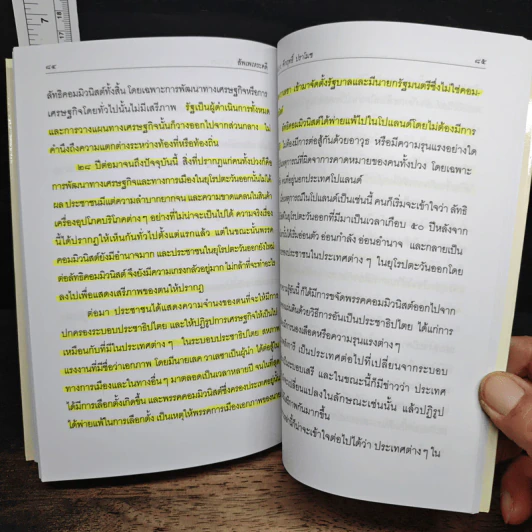 ๘๔ ฮัพเพอระคดี
ลัทธิคอมมิวนิสต์ทั้งสิ้น โดยเฉพาะการพัฒนาทางเศรษฐกิจหรือการ
เศรษฐกิจโดยทั่วไปนั้นไม่มีเสรีภาพ รัฐเป็นผู้ดำเนินการทั้งหมด
และการวางแผนทางเศรษฐกิจนั้นก็วางออกไปจากส่วนกลาง ไม่
คำนึงถึงความแตกต่างระหว่างท้องที่หรือท้องถิ่น
๒๘ ปีต่อมาจนถึงปัจจุบันนี้ สิ่งที่ปรากฏแก่คนทั้งปวงก็คือ
การพัฒนาทางเศรษฐกิจและทางการเมืองในยุโรปตะวันออกนั้นไม่ได้
ผล ประชาชนมีแต่ความลำบากยากจน และความขาดแคลนในสินค้า
เครื่องอุปโภคบริโภคต่างๆ อย่างที่ไม่น่าจะเป็นไปได้ ความจริงเรื่อง
นี้ได้ปรากฏให้เห็นกันทั่วไปตั้งแต่แรกแล้ว แต่ในขณะนั้นพรรค
คอมมิวนิสต์ยังมีอำนาจมาก และประชาชนในยุโรปตะวันออกยังใหม่
ต่อลัทธิคอมมิวนิสต์ จึงยังมีความเกรงกลัวอยู่มาก ไม่กล้าที่จะทำอะไร
ลงไปเพื่อแสดงเสรีภาพของตนให้ปรากฏ
ต่อมา ประชาชนได้แสดงความจำนงของตนที่จะให้มีการ
ปกครองระบอบประชาธิปไตย และให้ปฏิรูปการเศรษฐกิจให้เป็นไป
เหมือนกับที่มีในประเทศต่างๆ ในระบอบประชาธิปไตย สหภาพ
แรงงานที่มีชื่อว่าเอกภาพ โดยมีนายเลค วาเลซาเป็นผู้นำ ได้ต่อสู้ใน
ทางการเมืองและในทางอื่นๆ มาตลอดเป็นเวลาหลายปี จนในที่สุด
ได้มีการเลือกตั้งเกิดขึ้น และพรรคคอมมิวนิสต์ซึ่งครองประเทศอยู่นั้น
ได้พ่ายแพ้ในการเลือกตั้ง เป็นเหตุให้พรรคการเมืองเอกภาพของนาย
คึกฤทธิ์ ปราโมช ๘๕
เข้ามาจัดตั้งรัฐบาลและมีนายกรัฐมนตรีซึ่งไม่ใช่คอม-
ลัทธิคอมมิวนิสต์ได้พ่ายแพ้ไปในโปแลนด์โดยไม่ต้องมีการ
ไม่ต้องมีการต่อสู้กันด้วยอาวุธ หรือมีความรุนแรงอย่างใด
เหตุการณ์ที่ผิดจากความคาดหมายของคนทั้งปวง โดยเฉพาะ
ที่อยู่นอกประเทศโปแลนด์
เหตุการณ์ในโปแลนด์เป็นเช่นนี้ คนก็เริ่มจะเข้าใจว่า ลัทธิ
ในยุโรปตะวันออกที่มีมาเป็นเวลาเกือบ ๕๐ ปีหลังจาก
อ่อนตัว อ่อนกำลัง อ่อนอำนาจ และกลายเป็น
ประชาชนในประเทศต่างๆ ในยุโรปตะวันออกโดย
นี้ ก็ได้มีการขจัดพรรคคอมมิวนิสต์ออกไปจาก
ด้วยวิธีการอันเป็นประชาธิปไตย ได้แก่การ
นองเลือดหรือความรุนแรงต่างๆ
เป็นประเทศต่อไปที่เปลี่ยนจากระบอบ
ระบอบเสรี และในขณะนี้ก็มีข่าวว่า ประเทศ
เปลี่ยนแปลงในลักษณะเช่นนั้น แล้วปฏิรูป
กันมากขึ้น
ก็น่าจะเข้าใจต่อไปได้ว่า ประเทศต่างๆ ใน